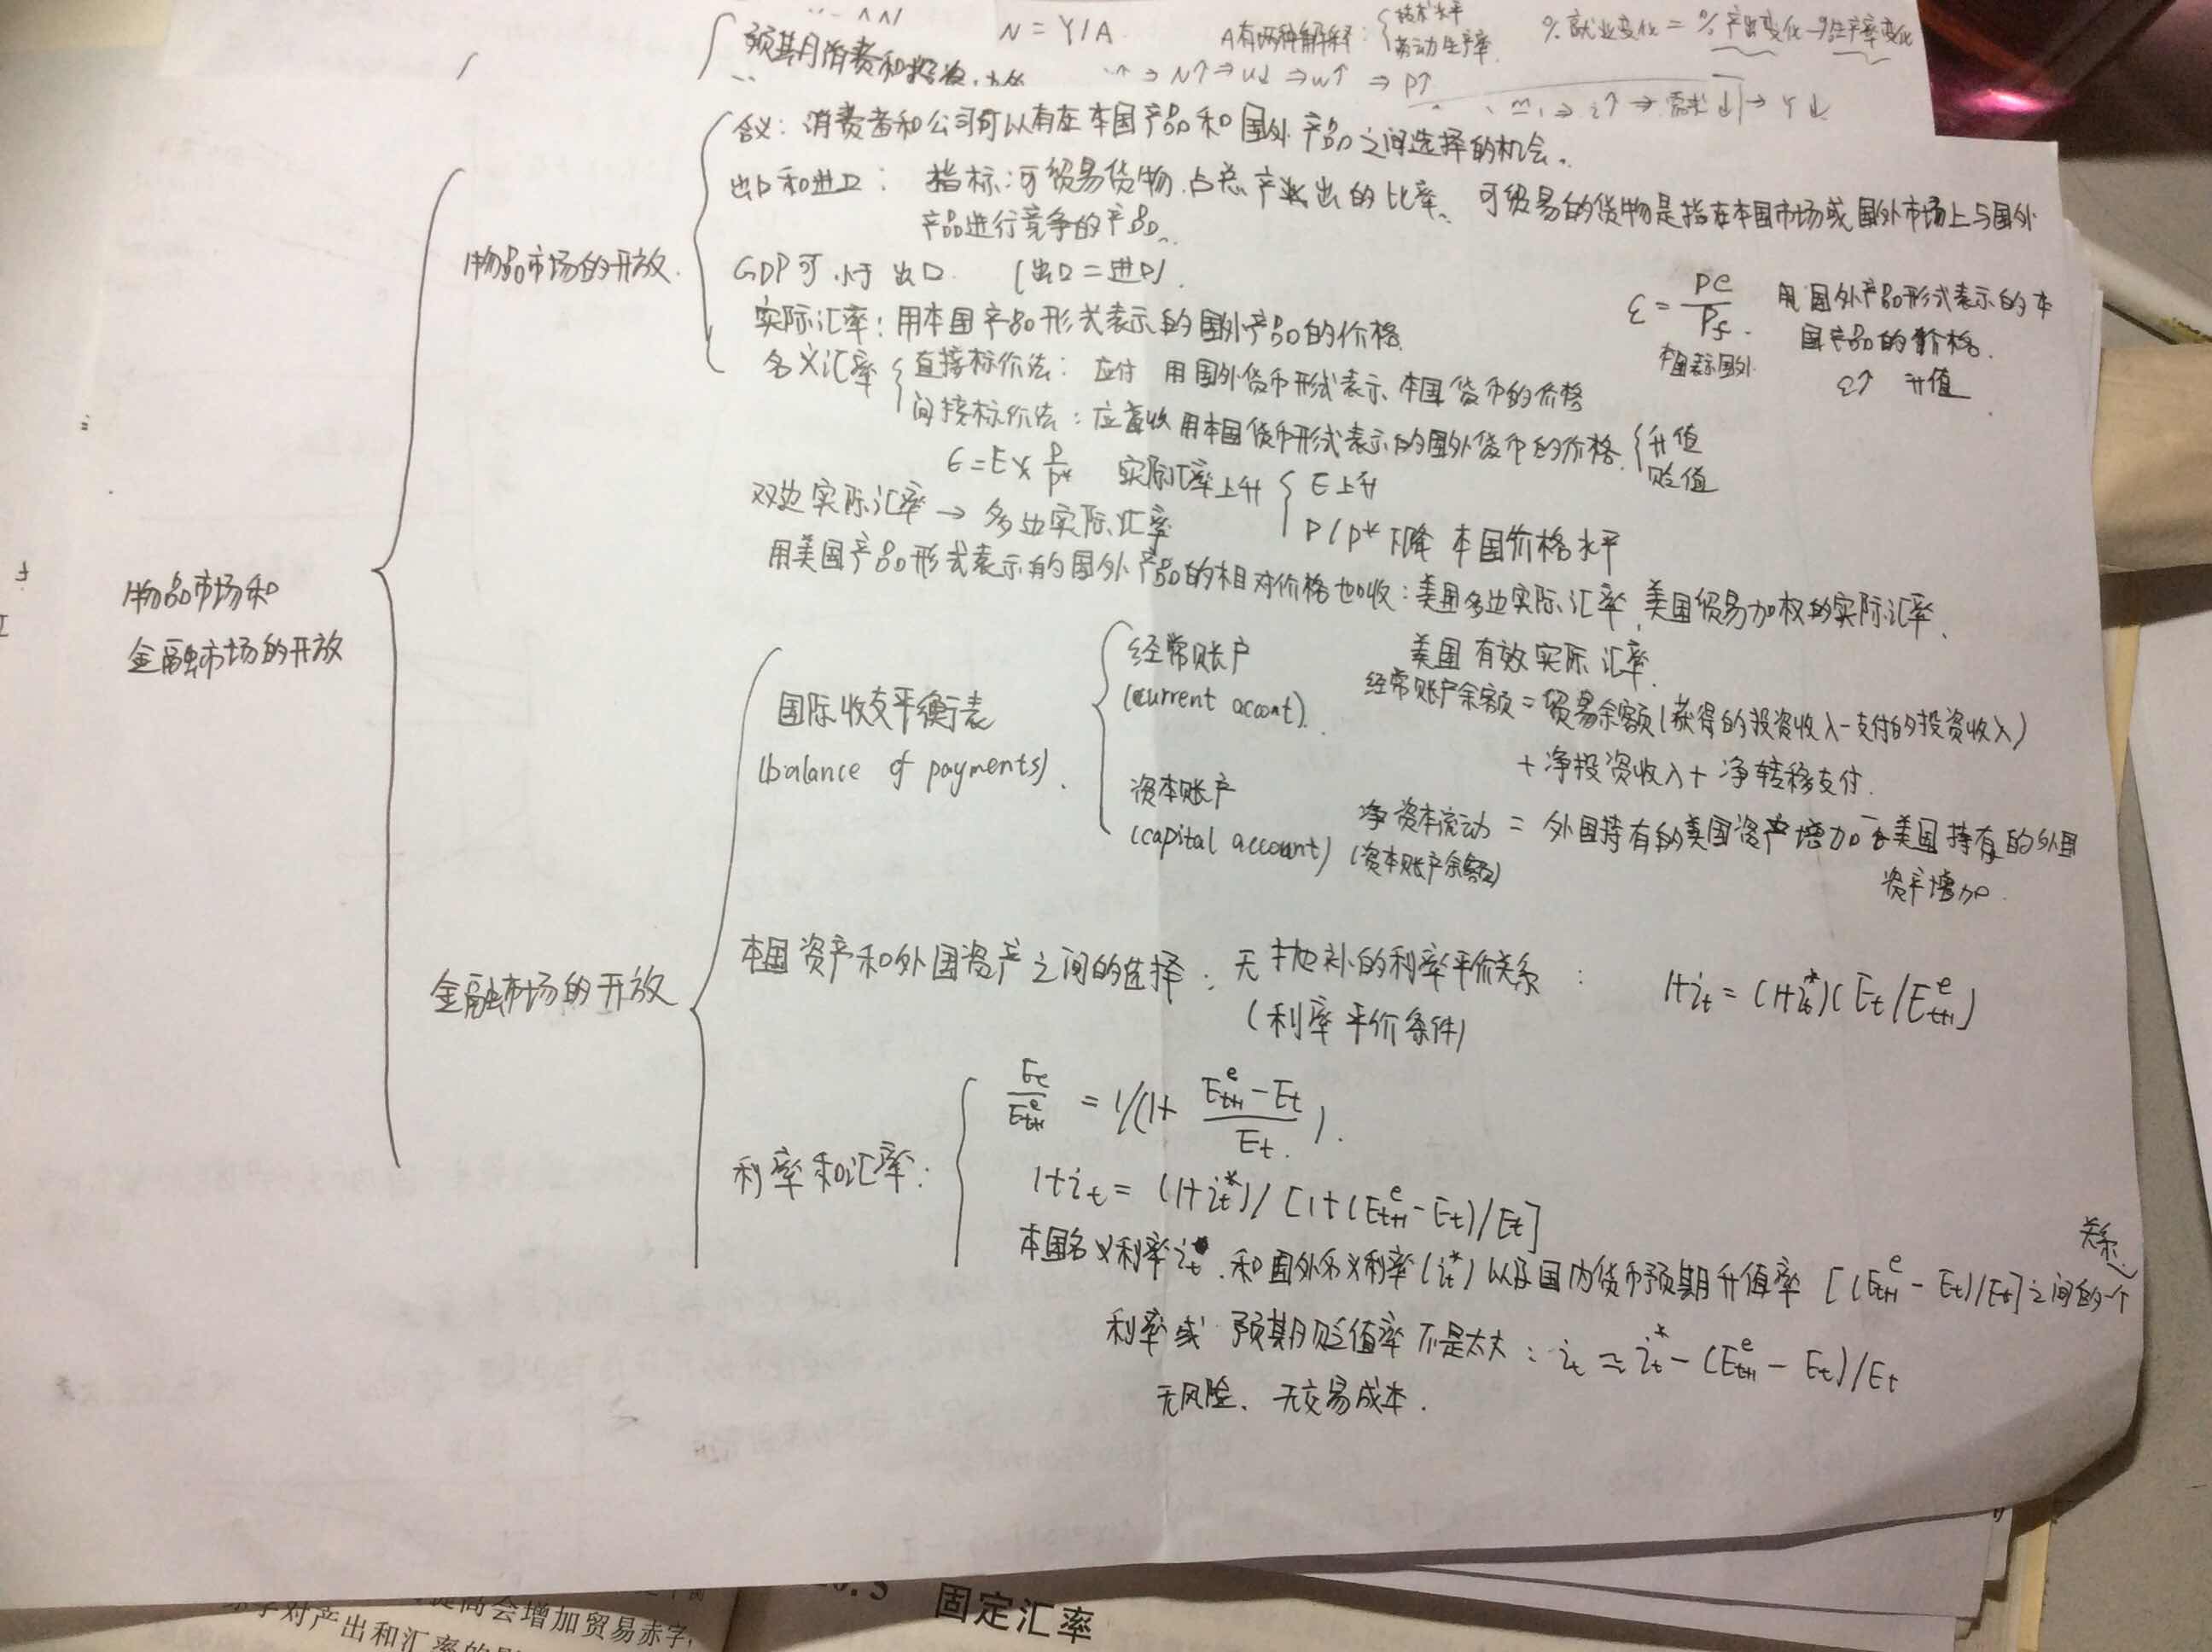 N = Y/A
A有两种解释:
技术水平
劳动生产率
%就业变化 = %产出变化 - %生产率变化
预期消费和
⇒ N↑ ⇒ u↓ ⇒ w↑ ⇒ P↑
⇒ i↑ ⇒ 需求↓ → Y↓
物品市场和
金融市场的开放
物品市场的开放.
含义: 消费者和公司可以有在本国产品和国外产品之间选择的机会.
出口和进口: 指标:可贸易货物占总产出的比率、 可贸易的货物是指在本国市场或国外市场上与国外
产品进行竞争的产品.
GDP可小于出口 (出口=进口).
实际汇率: 用本国产品形式表示的国外产品的价格
ε = Pe/Pf. 用国外产品形式表示的本
国产品的价格.
ε↑ 升值
名义汇率
直接标价法: 应付 用国外货币形式表示本国货币的价格
间接标价法: 应收 用本国货币形式表示的国外货币的价格
升值
贬值
ε = E × P/P* 实际汇率上升
E上升
P/P*下降 本国价格水平
双边实际汇率 → 多边实际汇率
用美国产品形式表示的国外产品的相对价格也叫: 美国多边实际汇率, 美国贸易加权的实际汇率、
美国有效实际汇率.
金融市场的开放
国际收支平衡表
(balance of payments).
经常账户
(current accont).
经常账户余额 = 贸易余额(获得的投资收入-支付的投资收入)
+ 净投资收入 + 净转移支付.
资本账户
(capital account)
净资本流动 = 外国持有的美国资产增加-美国持有的外国
(资本账户余额)
资产增加.
本国资产和外国资产之间的选择: 无抛补的利率平价关系: 1+i_t = (1+i_t*)(E_t/E^e_{t+1})
(利率平价条件)
利率和汇率:
E_t/E^e_{t+1} = 1/(1+ (E^e_{t+1} - E_t)/E_t).
1+i_t = (1+i_t*)/[1+(E^e_{t+1}-E_t)/E_t]
本国名义利率i_t 和国外名义利率(i_t*)以及国内货币预期升值率 [(E^e_{t+1} - E_t)/E_t]之间的一个
关系
利率或预期贬值率不是太大: i_t ≈ i_t* - (E^e_{t+1} - E_t)/E_t
无风险、无交易成本.
提高会增加贸易赤字,
对产出和汇率的
.5 固定汇率